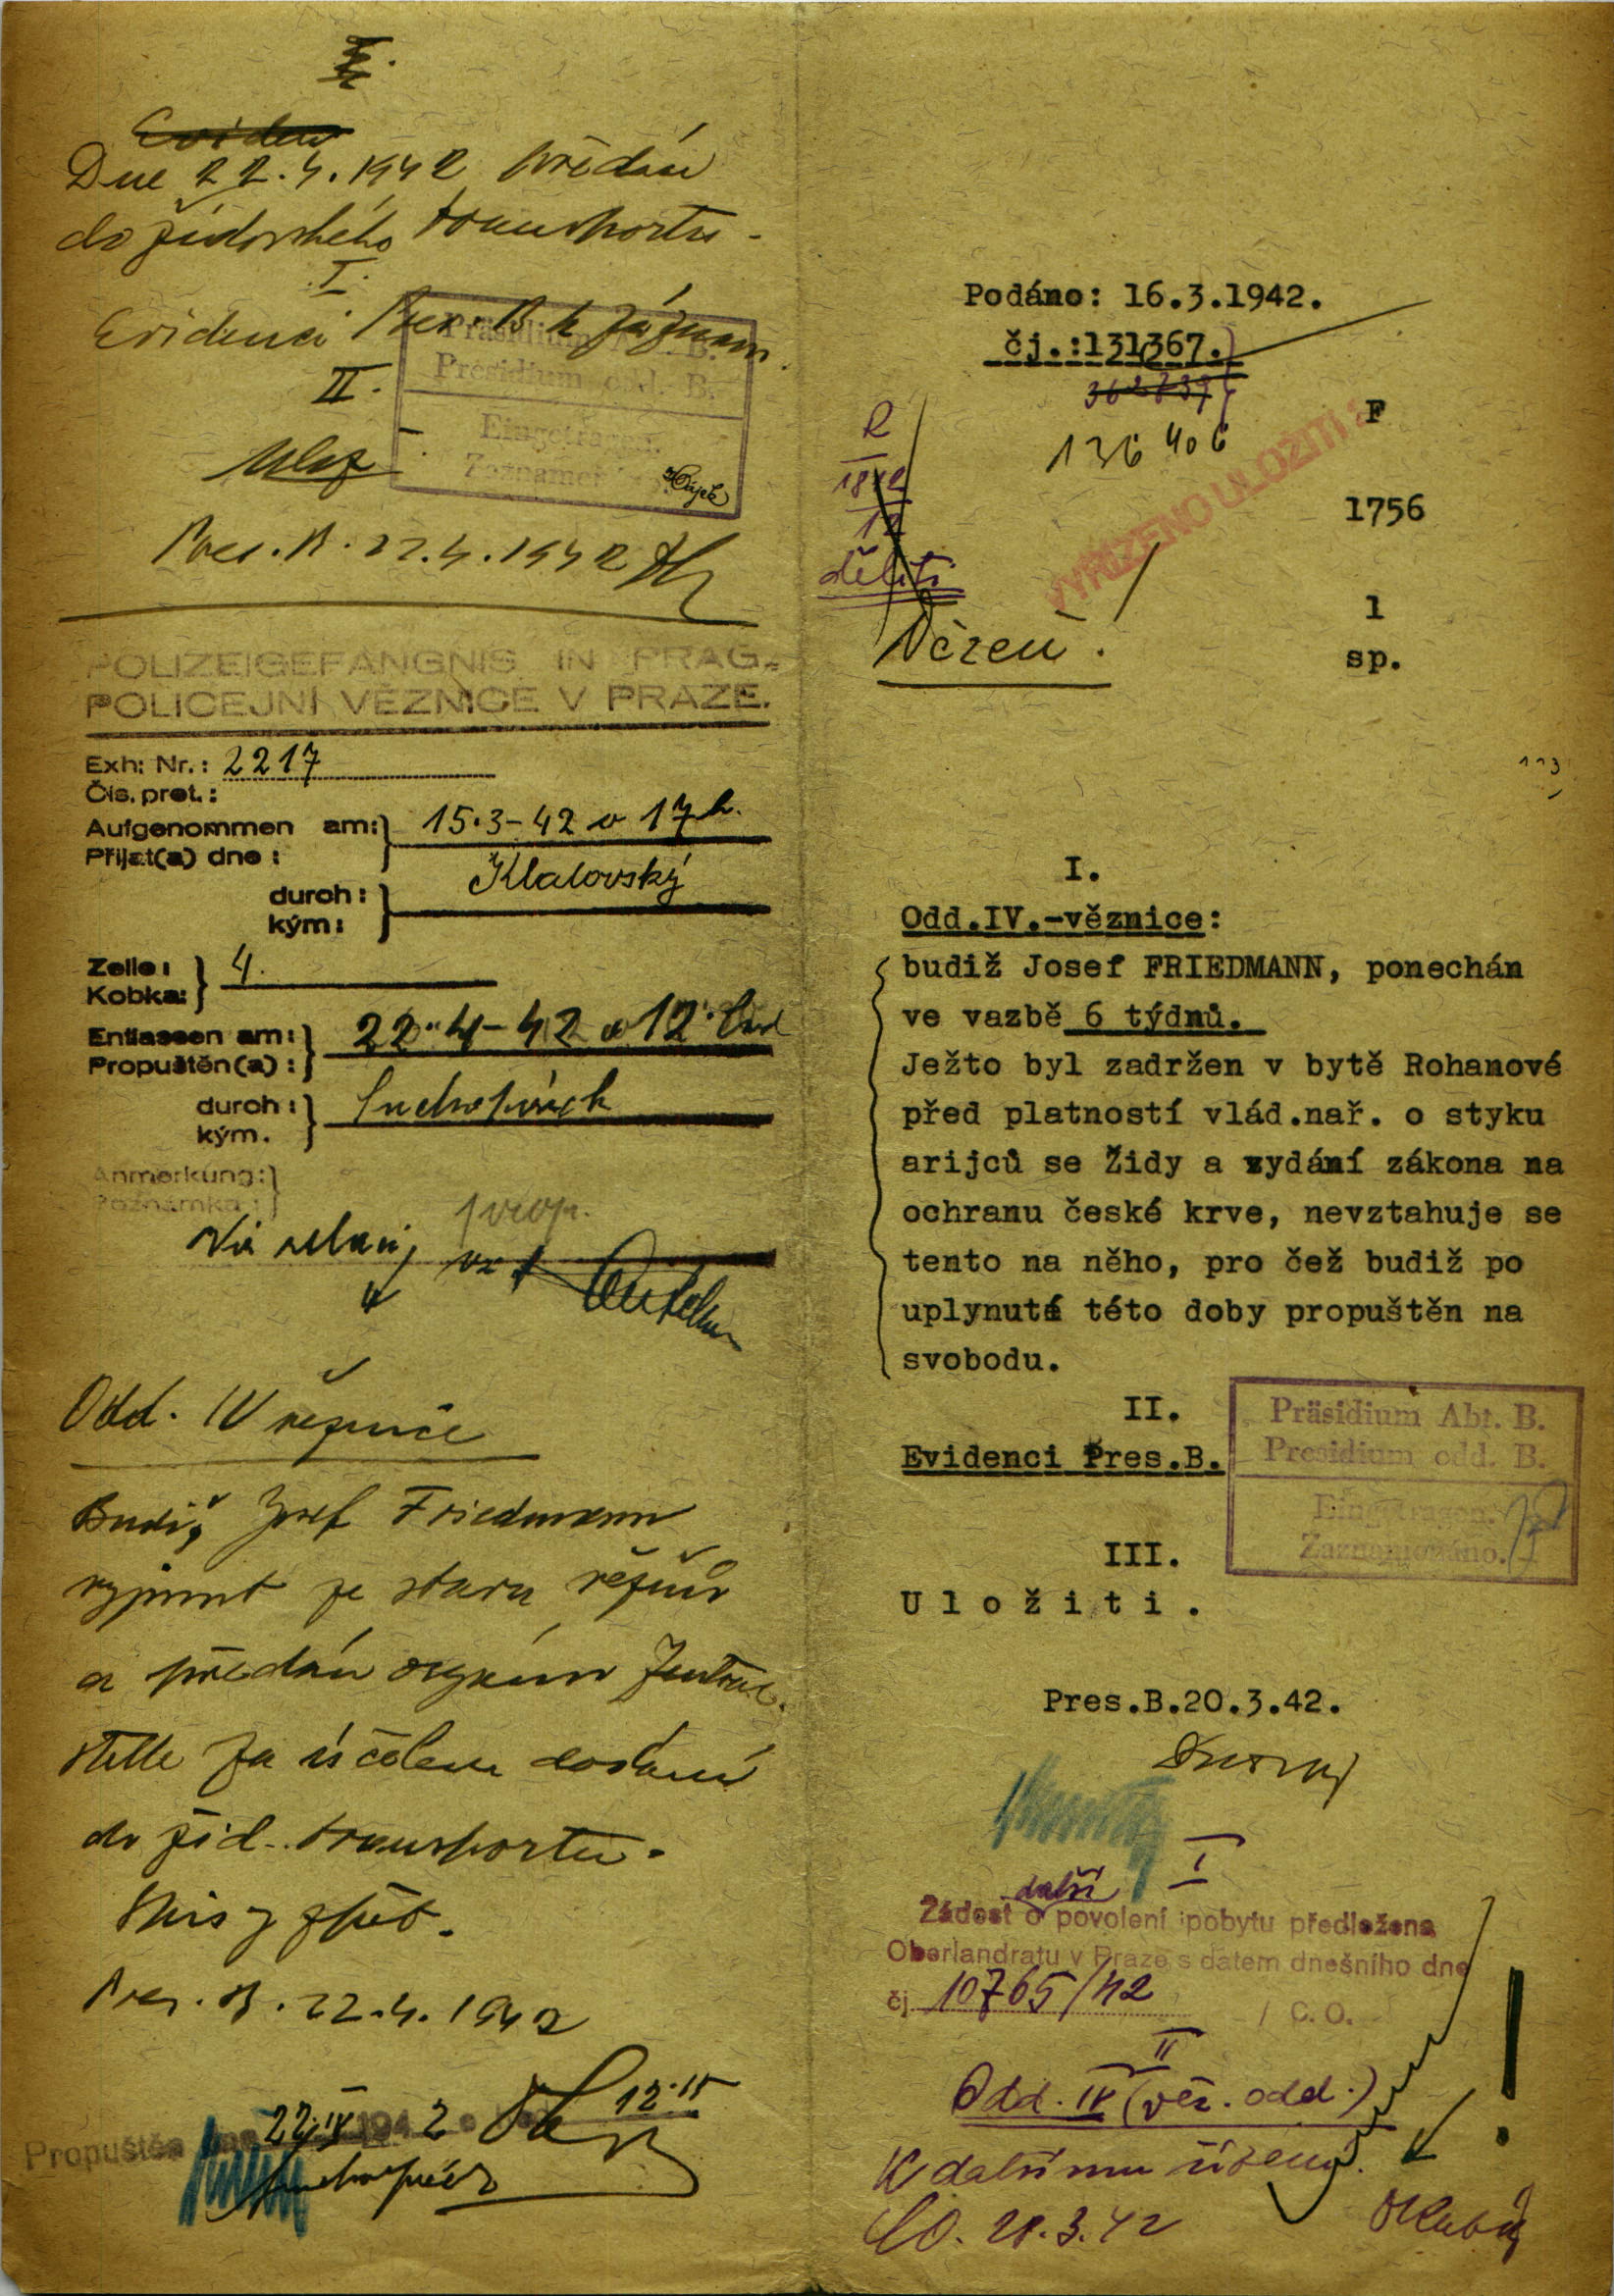 Dne 22.4.1942 předán
do židovského transportu.
I.
Evidenci Pres. B k záznam.
II.
Präsidium Abt. B.
Presidium odd. B.
Eingetragen.
Hájek
Pres. B. 22.4.1942
POLIZEIGEFÄNGNIS IN PRAG.
POLICEJNÍ VĚZNICE V PRAZE.
Exh: Nr.: 2217
Čis. prot.:
Aufgenommen am: 15.3-42 v 17 h.
Přijat(a) dne:
durch: Klatovský
kým:
Zelle: 4.
Kobka:
Entlassen am: 22.4-42 v 12.
Propuštěn(a):
durch:
kým.
Anmerkung:
Poznámka:
Odd. IV věznice
Budiž Josef Friedmann
vyjmut ze stavu vězňů
a předán orgánům Zentral-
stelle za účelem dodání
do žid. transportu.
Spis zpět.
Pres. B. 22.4.1942
Propuštěn dne 22.IV 1942 12.15
Podáno: 16.3.1942.
čj.:131367.
136406
F
VYŘÍZENO ULOŽITI
1756
děliti
1
sp.
Vězeň!
I.
Odd.IV.-věznice:
budiž Josef FRIEDMANN, ponechán
ve vazbě 6 týdnů.
Ježto byl zadržen v bytě Rohanové
před platností vlád.nař. o styku
arijců se Židy a vydání zákona na
ochranu české krve, nevztahuje se
tento na něho, pro čež budiž po
uplynuté této doby propuštěn na
svobodu.
II.
Evidenci Pres.B.
Präsidium Abt. B.
Presidium odd. B.
Eingetragen.
Zaznamenáno.
III.
Uložiti.
Pres.B.20.3.42.
I
další
Žádost o povolení pobytu předložena
Oberlandratu v Praze s datem dnešního dne
čj 10765/42 / C. O.
II
Odd. IV (věz. odd.)
K dalšímu řízení.
CO. 28.3.42